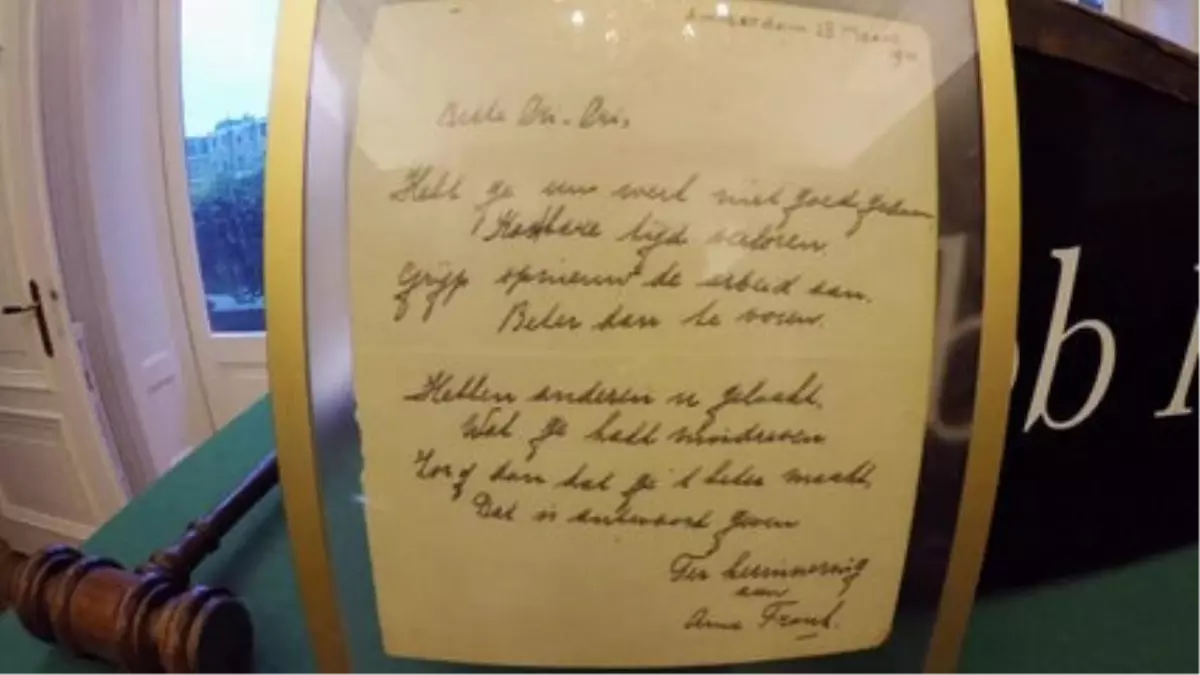 Amsterdam 28 Maart
19
Beste Cri-Cri,
Hebt ge uw werk niet goed gedaan
Kostbare tijd verloren
Grijp opnieuw de arbeid aan.
Beter dan te voren.
Hebben anderen u gelaakt,
Wat ge hebt misdreven
Zorg dan dat ge 't beter maakt,
Dat is antwoord geven
Ter herinnering
aan
Anne Frank.
b